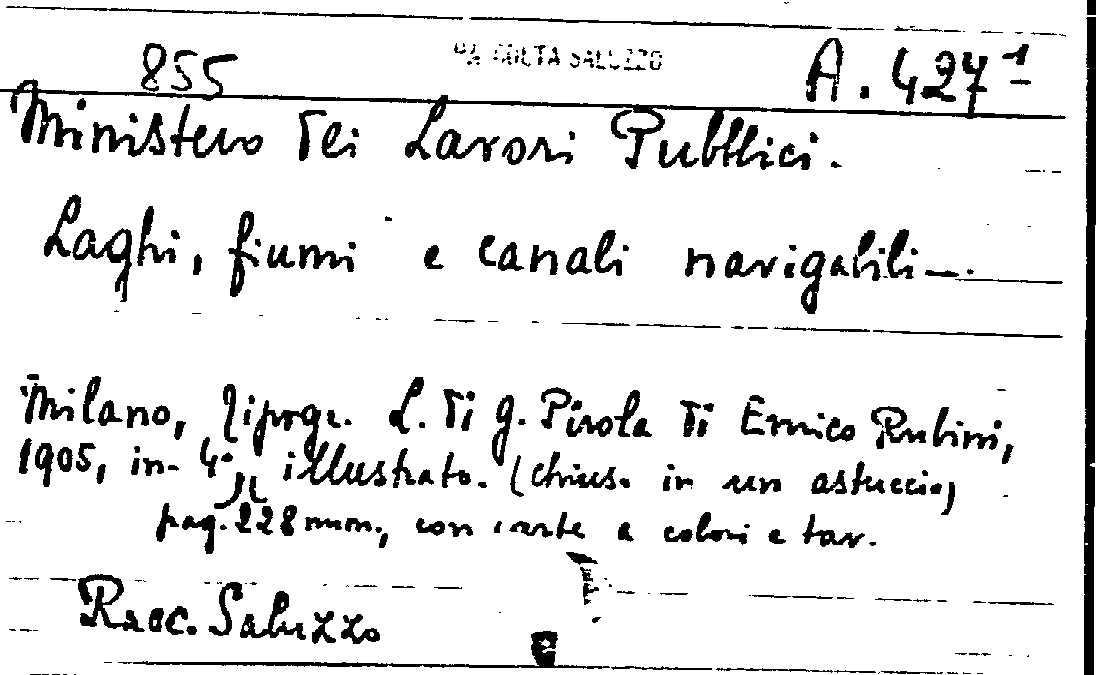 855 RACCOLTA SALUZZO A. 427¹
Ministero dei Lavori Pubblici.
Laghi, fiumi e canali navigabili —.
Milano, Tipogr. L. di G. Pirola di Enrico Rubini,
1905, in-4°, illustrato. (chiuso in un astuccio)
pag. 228 num., con carte a colori e tav.
Racc. Saluzzo